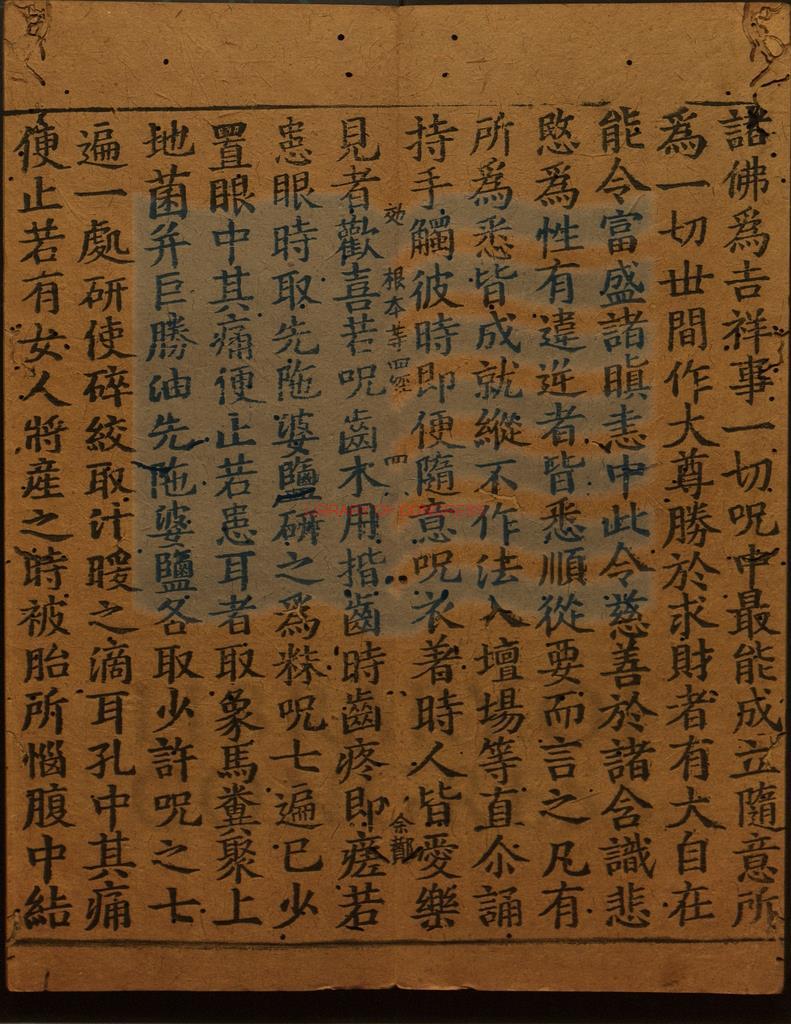 諸佛爲吉祥事一切呪中最能成立隨意所
爲一切世間作大尊勝於求財者有大自在
能令富盛諸瞋恚中此令慈善於諸含識悲
愍爲性有違逆者皆悉順從要而言之凡有
所爲悉皆成就縱不作法入壇場等直尒誦
持手觸彼時即便隨意呪衣著時人皆愛樂
効 根本等四經 四 余鄭
見者歡喜若呪齒木用揩齒時齒疼即瘥若
患眼時取先陁婆鹽硏之爲粖呪七遍已少
置眼中其痛便止若患耳者取象馬糞聚上
地菌并巨勝油先陁婆鹽各取少許呪之七
遍一處硏使碎絞取汁暖之滴耳孔中其痛
便止若有女人將産之時被胎所惱腹中結
LIBRARY OF CONGRESS